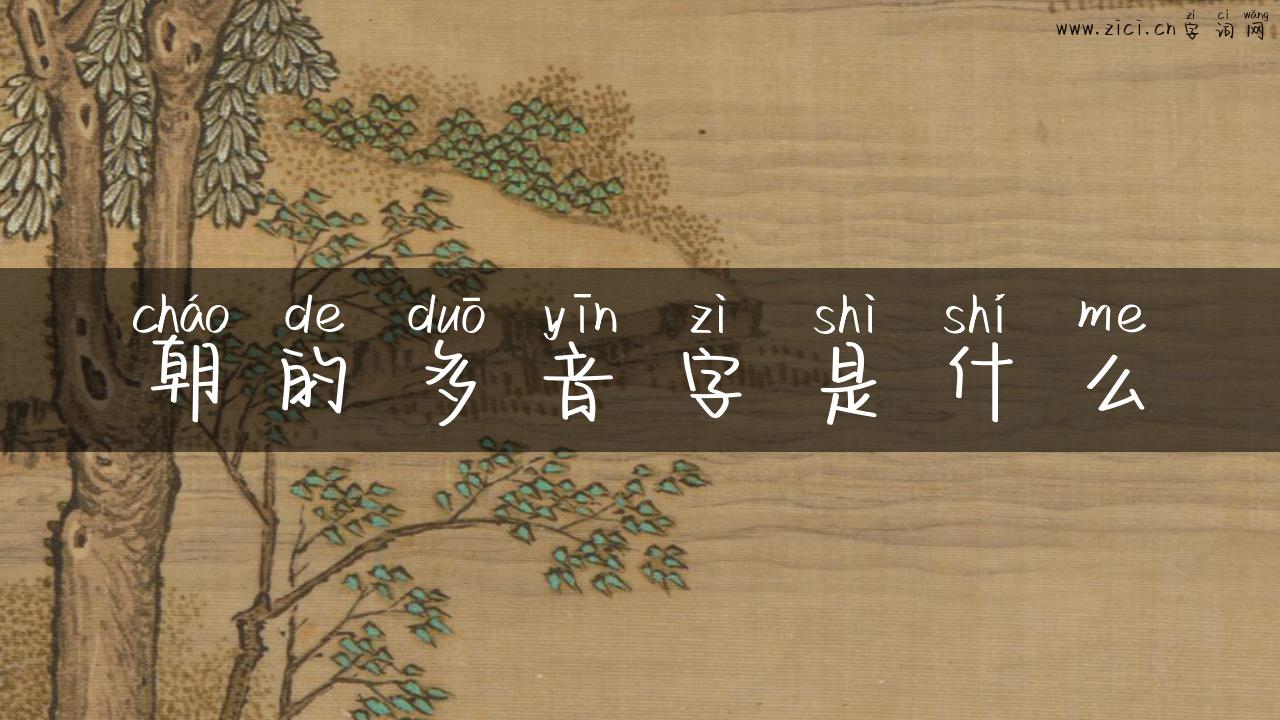 zì cí wǎng
www.zici.cn 字词网
cháo de duō yīn zì shì shí me
朝的多音字是什么